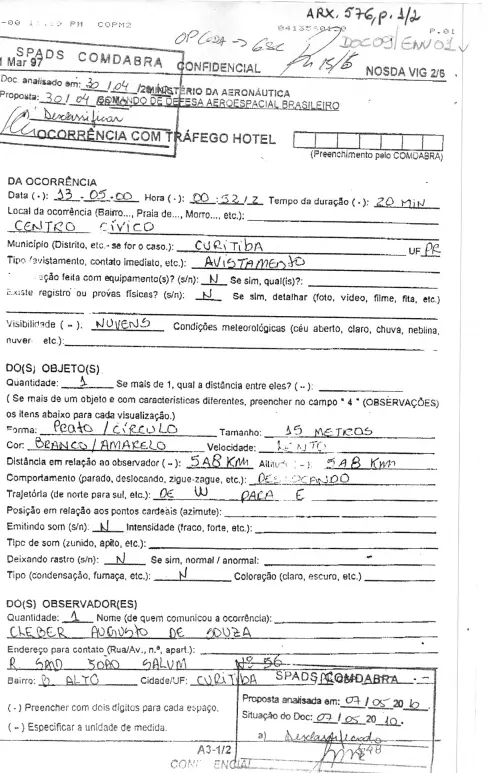 ARX. 576, p. 1/2
COPM2
P.01
DOC 09 ENV 01
SPADS COMDABRA
CONFIDENCIAL
NOSDA VIG 2/6
1 Mar 97
Doc. analisado em: 30 / 04 /
MINISTÉRIO DA AERONÁUTICA
Proposta: 30 / 04
COMANDO DE DEFESA AEROESPACIAL BRASILEIRO
Desclassificar
OCORRÊNCIA COM TRÁFEGO HOTEL
(Preenchimento pelo COMDABRA)
DA OCORRÊNCIA
Data ( · ): 13 - 05 - 00 Hora ( · ): 00 : 52 / Z Tempo da duração ( · ): 20 MIN
Local da ocorrência (Bairro..., Praia de..., Morro..., etc.):
CENTRO CÍVICO
Município (Distrito, etc.- se for o caso.): CURITIBA UF PR
Tipo (avistamento, contato imediato, etc.): AVISTAMENTO
ção feita com equipamento(s)? (s/n): N Se sim, qual(is)?:
Existe registro ou provas físicas? (s/n): N Se sim, detalhar (foto, vídeo, filme, fita, etc.)
Visibilidade ( – ): NUVENS Condições meteorológicas (céu aberto, claro, chuva, neblina,
nuvem etc.):
DO(S) OBJETO(S)
Quantidade: 1 Se mais de 1, qual a distância entre eles? ( – ):
( Se mais de um objeto e com características diferentes, preencher no campo " 4 " (OBSERVAÇÕES)
os itens abaixo para cada visualização.)
Forma: PRATO / CÍRCULO Tamanho: 15 METROS
Cor: BRANCO / AMARELO Velocidade: LENTO
Distância em relação ao observador ( – ): 5 A 8 KM Altitude ( – ): 5 A 8 KM
Comportamento (parado, deslocando, zigue-zague, etc.): DESLOCANDO
Trajetória (de norte para sul, etc.): DE W PARA E
Posição em relação aos pontos cardeais (azimute):
Emitindo som (s/n): N Intensidade (fraco, forte, etc.):
Tipo de som (zunido, apito, etc.):
Deixando rastro (s/n): N Se sim, normal / anormal: -
Tipo (condensação, fumaça, etc.): N Coloração (claro, escuro, etc.)
DO(S) OBSERVADOR(ES)
Quantidade: 1 Nome (de quem comunicou a ocorrência):
CLEBER AUGUSTO DE SOUZA
Endereço para contato (Rua/Av., n.º, apart.):
R. JOÃO SALUM Nº 56
Bairro: B. ALTO Cidade/UF: CURITIBA
SPADS COMDABRA
( · ) Preencher com dois dígitos para cada espaço.
Proposta analisada em: 07 / 05 20 10
( – ) Especificar a unidade de medida.
Situação do Doc: 07 / 05 20 10.
a) Desclassificado
A3-1/2
CONFIDENCIAL